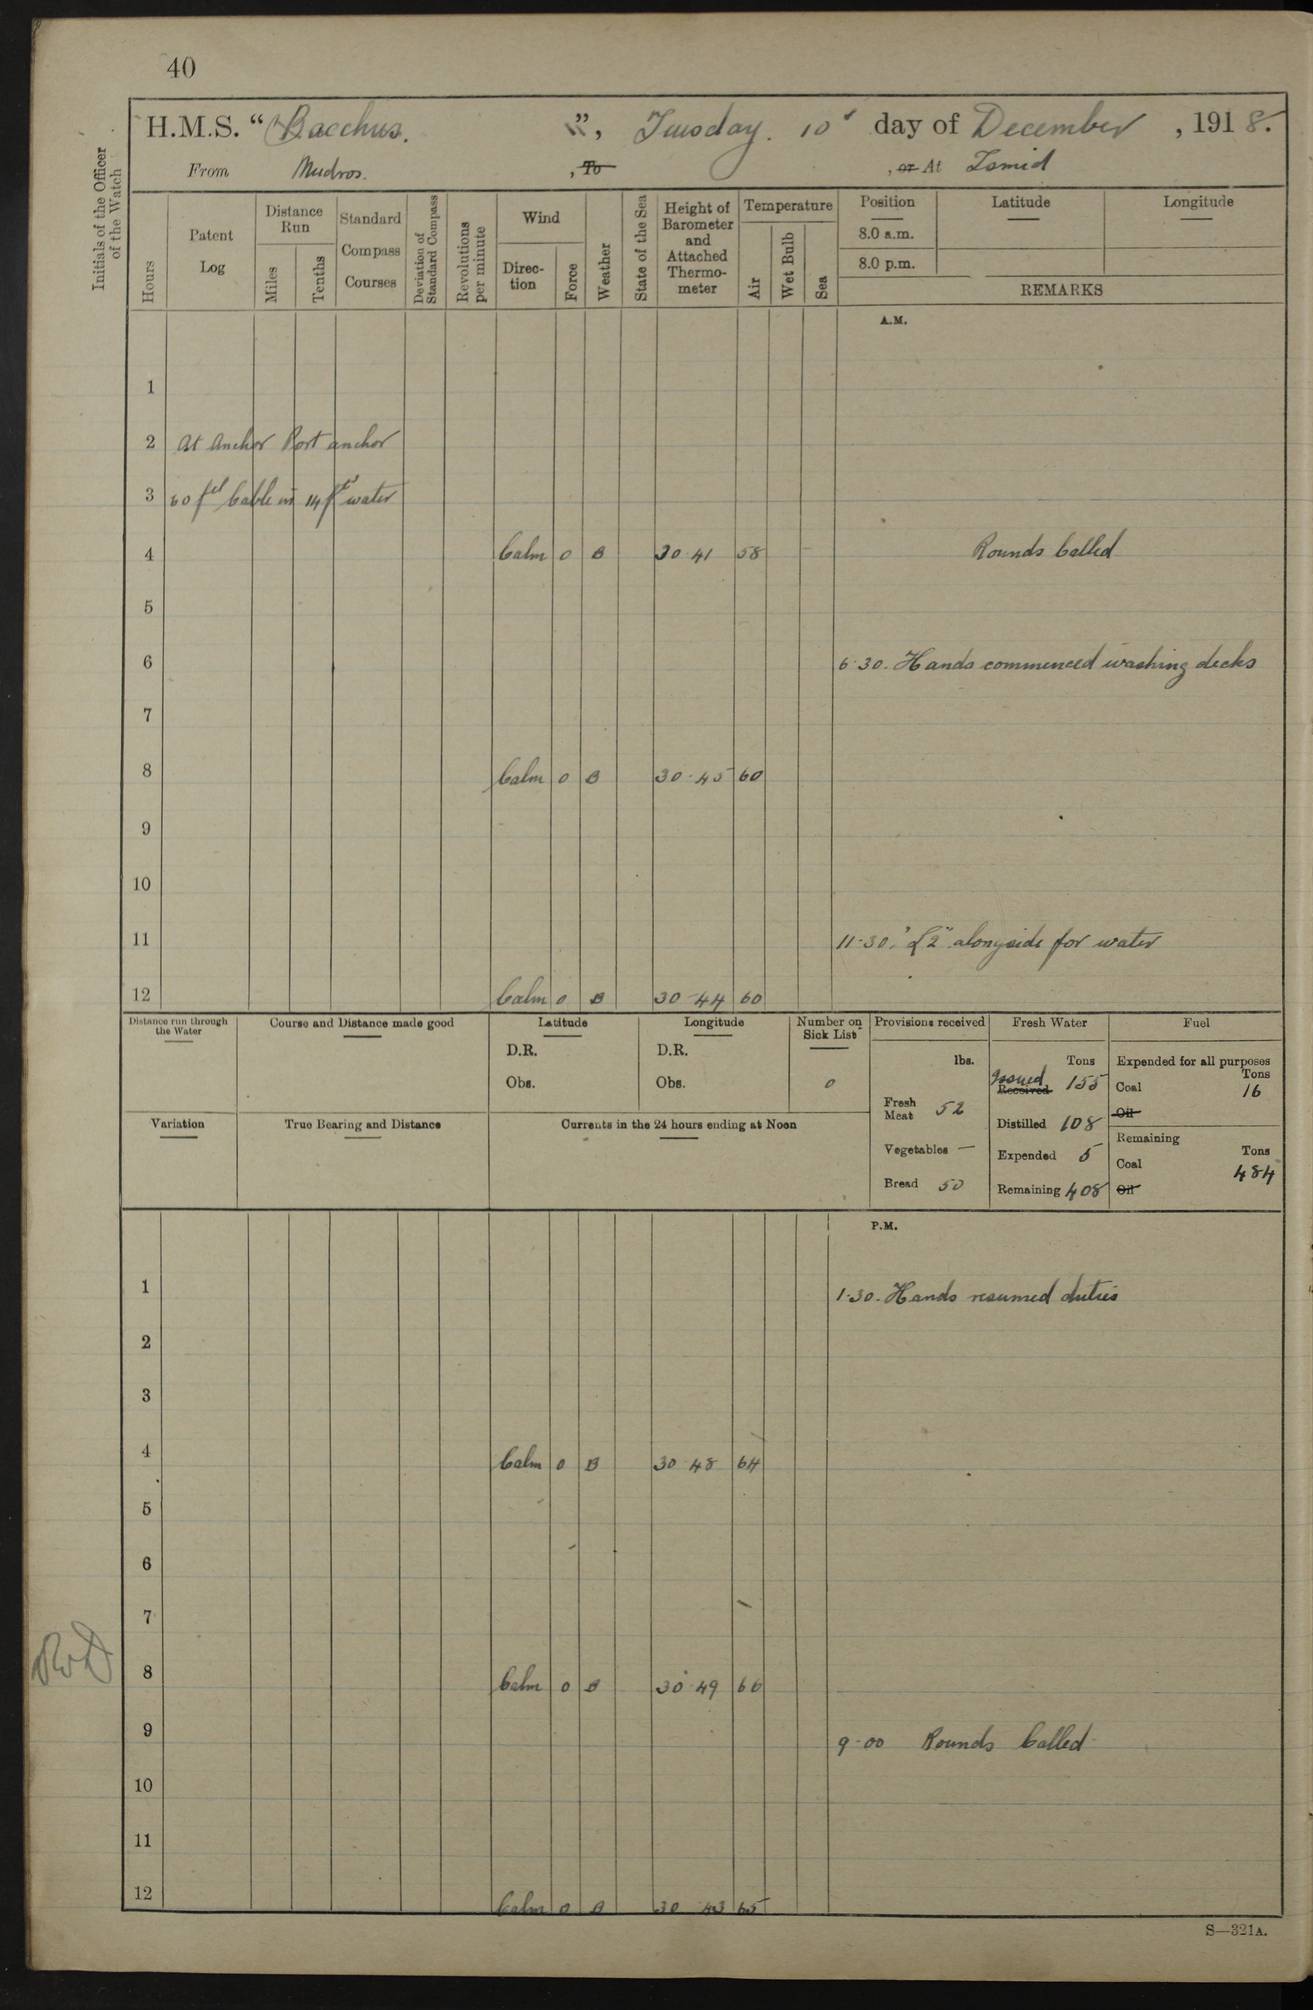 40
H.M.S. “Bacchus.”, Tuesday. 10th day of December, 1918.
From Mudros. , To , or At Ismid
Initials of the Officer of the Watch
Hours
Patent Log
Distance Run
Miles
Tenths
Standard Compass Courses
Deviation of Standard Compass
Revolutions per minute
Wind
Direction
Force
Weather
State of the Sea
Height of Barometer and Attached Thermometer
Temperature
Air
Wet Bulb
Sea
Position
8.0 a.m.
8.0 p.m.
Latitude
Longitude
REMARKS
A.M.
1
2 At Anchor Port anchor
3 60 fms Cable in 14 fms water
4 Calm 0 B 30 41 58 Rounds Called
5
6 6.30. Hands commenced washing decks
7
8 Calm 0 B 30.45 60
9
10
11 11.30. "L2" alongside for water
12 Calm 0 B 30 44 60
Distance run through the Water
Course and Distance made good
Latitude
D.R.
Obs.
Longitude
D.R.
Obs.
Number on Sick List
0
Variation
True Bearing and Distance
Currents in the 24 hours ending at Noon
Provisions received
lbs.
Fresh Meat 52
Vegetables —
Bread 50
Fresh Water
Tons
Issued Received 155
Distilled 108
Expended 5
Remaining 408
Fuel
Expended for all purposes
Tons
Coal 16
Oil
Remaining
Tons
Coal 484
Oil
P.M.
1 1.30. Hands resumed duties
2
3
4 Calm 0 B 30 48 64
5
6
7
8 Calm 0 B 30 49 66
9 9.00 Rounds Called
10
11
12 Calm 0 B 30 43 65
S—321A.